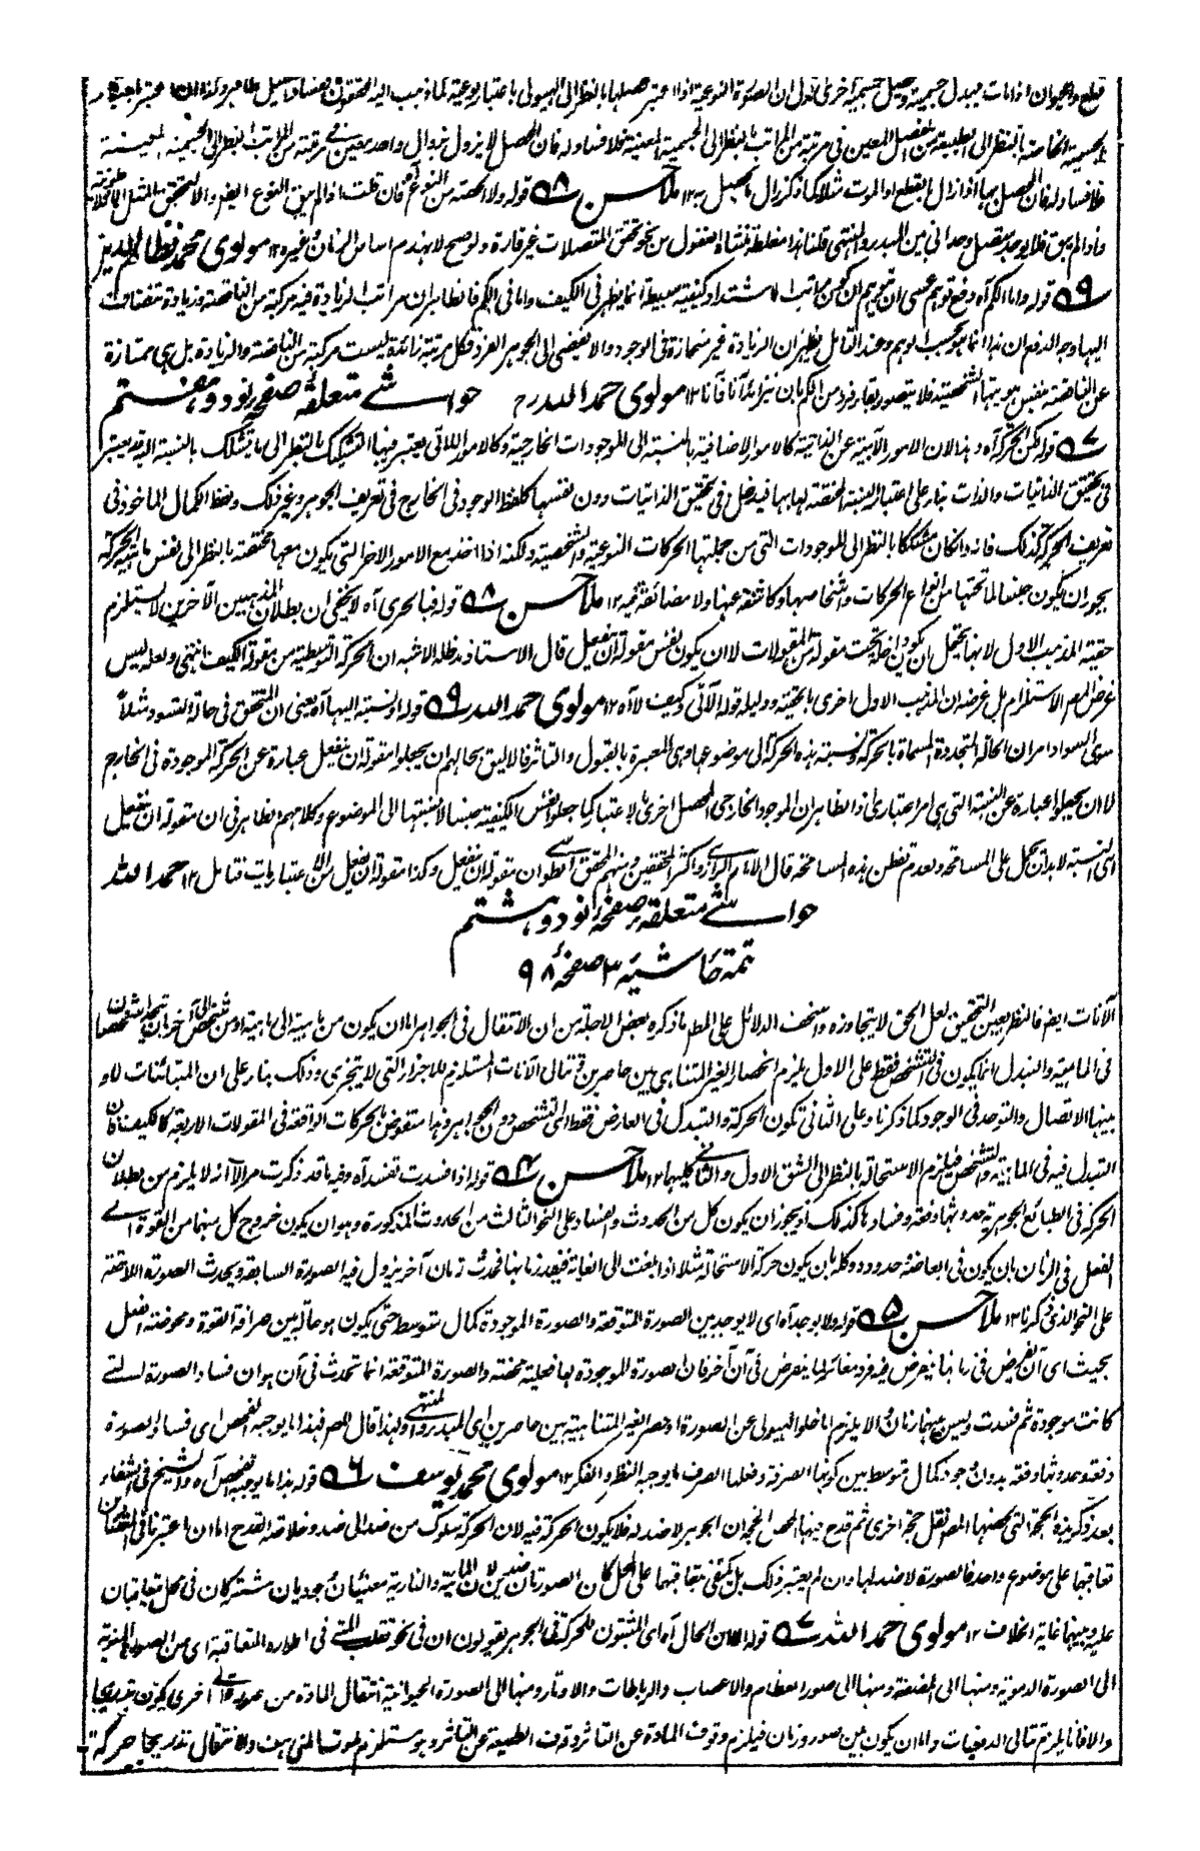 قطع والحيوان اذا مات يتبدل جسمية ويحصل جسمية اخرى نقول ان الصورة النوعية اذا اعتبر حصلها بالنظر الى الهيولى باعتبار نوعية كما ذهب اليه المحققون
الجسمية الخاصة بالنظر الى الطبيعة من المحصل المعين فى مرتبة من المراتب بالنظر الى الجسمية المعينة فلا فساد له فان المحصل لا يزول بزوال واحد معين فى مرتبة من المراتب بالنظر الى الجسمية المعينة
فلا فساد له فان المحصل بها اذا زال بالقطع او الموت مثلا كما ذكر زال ما يحصل ١٢ ملا حسن ٥٨ قوله ولا حصة من النوع فان قلت اذا لم يبق النوع ايضا والا لتحقق
واذا لم يبق فلا يوجد متصل وحدانى من المبدء والمنتهى قلنا هذا مغلطة منشأه الغفول من نحو تحقق المتصلات غير قارة ولو صح لانهدم اساس الزمان وغيره ١٢ مولوى محمد نظام الدين
٥٩ قوله واما الكم آه دفع توهم عسى ان يتوهم ان كون مراتب الاشتداد كيفية بسيطة انما يظهر فى الكيف واما فى الكم فالظاهر ان مراتب الزيادة فيه مركبة من الناقصة وزيادة تنضاف
اليها وجه الدفع ان هذا انما هو بحسب الوهم وعند التامل يظهر ان الزيادة غير منحازة فى الوجود والا يفضى الى الجوهر الفرد فكل مرتبة زائدة ليست مركبة من الناقصة والزيادة بل هى ممتازة
عن الناقصة بنفس هويتها الشخصية فلا يتصور بقاء فرد من الكم بان يتزايد آنا فآنا ١٢ مولوى حمد الله رح حواشے متعلقۂ صفحہ نود و ہفتم
٥٧ قوله لكن الحركة آه وهذا لان الامور الآبية عن الذاتية كالامور الاضافية بالنسبة الى الموجودات الخارجية وكالامور اللاتى يعتبر فيها التشكيك بالنظر الى ما يتشكك بالنسبة اليه قد يعتبر
فى تحقيق الذاتيات والذات بناء على اعتبار النسبة المختصة بها بها فيدخل فى تحقيق الذاتيات دون نفسها كلفظ الوجود فى الخارج فى تعريف الجوهر وغير ذلك ولفظ الكمال الماخوذ فى
تعريف الحركة كذلك فانه وان كان مشككا بالنظر الى الموجودات التى من جملتها الحركات النوعية والشخصية ولكنه اذا اخذ مع الامور الاخر التى يكون معها مختصة بالنظر الى نفس ماهية الحركة
يجوز ان يكون جنسا لما تحتها من انواع الحركات واشخاصها وكاشفة عنها ولا مضائقة فيه ١٢ ملا حسن ٥٨ قوله فبالحرى آه لا يخفى ان بطلان المذهبين الآخرين لا يستلزم
حقية المذهب الاول لانه يحتمل ان يكون داخلة تحت مقولة من المقولات لا ان يكون نفس مقولة ان ينفعل قال الاستاذ مد ظله الاشبه ان الحركة التوسطية من مقولة الكيف انتهى ولعله ليس
غرض المص الاستلزام بل غرضه ان المذهب الاول احرى بالحقية ودليله قوله الآتى وكيف لا آه ١٢ مولوى حمد الله ٥٩ قوله او نسبة اليها آه يعنى ان المتحقق فى حالة التسود مثلاً
سوى السواد امران الحالة المتجددة المسماة بالحركة ونسبة هذه الحركة الى موضوعها وهى المعبرة بالقبول والتاثر فالاليق بحالهم ان يجعلوا مقولة ان ينفعل عبارة عن الحركة الموجودة فى الخارج
لا ان يجعلوا عبارة عن النسبة التى هى امر اعتبارى اذ الظاهر ان الموجود الخارجى المحصل احرى بالاعتبار كما جعلوا نفس الكيفية جنسا لا نسبتها الى الموضوع وكلامهم ظاهر فى ان مقولة ان ينفعل
هى النسبة لا بد ان يحمل على المسامحة ولعدم تفطن هذه المسامحة قال الامام الرازى واكثر المحققين ومنهم المحقق الطوسى ان مقولة ان ينفعل وكذا مقولة ان يفعل من الاعتباريات فتامل ١٢ حمد الله
حواشے متعلقہ صفحہ نود و ہشتم
تتمۂ حاشیہ ٣ صفحۂ ٩٨
الآنات ايضا فالنظر بعين التحقيق لعل الحق لا يتجاوزه واسخف الدلائل على المطلب ما ذكره بعض الاجلة من ان الانتقال فى الجواهر اما ان يكون من ماهية الى ماهية او من شخص الى آخر
فى الماهية والتبدل انما يكون فى التشخص فقط على الاول يلزم انحصار الغير المتناهى بين حاصرين وتتالى الآنات المستلزم للاجزاء التى لا يتجزى وذلك بناء على ان المتبائنات لا
بينها الاتصال والتوحد فى الوجود كما ذكرنا وعلى الثانى تكون الحركة والتبدل فى العارض فقط اى التشخص دون الجواهر وهذا منقوض بالحركات الواقعة فى المقولات الاربعة كالكيف فان
التبدل فيه فى الماهية والتشخص فيلزم الاستحالة بالنظر الى الشق الاول والثانى كليهما ١٢ ملا حسن ٥٤ قوله اذا فسدت تفسد آه وفيه ما قد ذكرت مرارا انه لا يلزم من بطلان
الحركة فى الطبائع الجوهرية حدوثها دفعة وفسادها كذلك او يجوز ان يكون كل من الحدوث والفساد على النحو الثالث من الحدوث المذكورة وهو ان يكون خروج كل منهما من القوة الى
الفعل فى الزمان بان يكون فى ابعاضه وحدوده وكله بان يكون حركة الاستحالة مثلا اذا بلغت الى الغاية فبعد زمانها فحدث زمان آخر يزول فيه الصورة السابقة ويحدث الصورة اللاحقة
على النحو الذى ذكرنا ١٢ ملا حسن ٥٥ قوله ولا يوجد آه اى لا يوجد بين الصورة المتوقعة والصورة الموجودة كمال متوسط حتى يكون هو حالة بين صرافة القوة ومحوضة الفعل
بحيث اى آن يفرض فى زمانها يفرض فيه فرد مغائر لما يفرض فى آن آخر فان الصورة الموجودة لها فعلية محضة والصورة المتوقعة انما تحدث فى آن هو ان فساد الصورة التى
كانت موجودة ثم فسدت وليس بينهما زمان والا يلزم اما خلو الهيولى عن الصورة او حصر الغير المتناهية بين حاصرين اى المبدء والمنتهى ولهذا قال المص فهذا ما يوجبه الفحص اى فساد الصورة
دفعة وحدوثها دفعة بدون وجود كمال متوسط بين كونها الصرفة وفعلها الصرف ما يوجبه النظر والفكر ١٢ مولوى محمد يوسف ٥٦ قوله هذا ما يوجبه الفحص آه والشيخ فى الشفاء
بعد ذكر هذه الحجة التى لخصها المص نقل حجة اخرى ثم قدح فيها محصل الحجة ان الجوهر لا ضد له فلا يكون الحركة فيه لان الحركة سلوك من ضد الى ضد وخلاصة القدح اما ان اعتبر فى المتضادين
تعاقبها على موضوع واحد فالصورة لا ضد لها وان لم يعتبر ذلك بل يكتفى بتعاقبها على المحل كان الصورتان ضدين لان المائية والنارية معنيان وجوديان مشتركان فى محل يتعاقبان
عليه وبينهما غاية الخلاف ١٢ مولوى حمد الله ٥٧ قوله الان الحال آه اى المثبتون للحركة فى الجوهر يقولون ان فى نحو تقلب المنى فى اطواره المتعاقبة اى من الصورة المنوية
الى الصورة الدموية ومنها الى المضغة ومنها الى صور العظام والاعصاب والرباطات والاوتار ومنها الى الصورة الحيوانية انتقال المادة من صورة الى اخرى يكون تدريجا
والا فاما يلزم تتالى الدفعيات واما ان يكون بين صورة زمان فيلزم وقوف المادة عن التاثر وقوف الطبيعة عن التاثير وهو مستلزم لموت المنى هف والانتقال تدريجا حركة